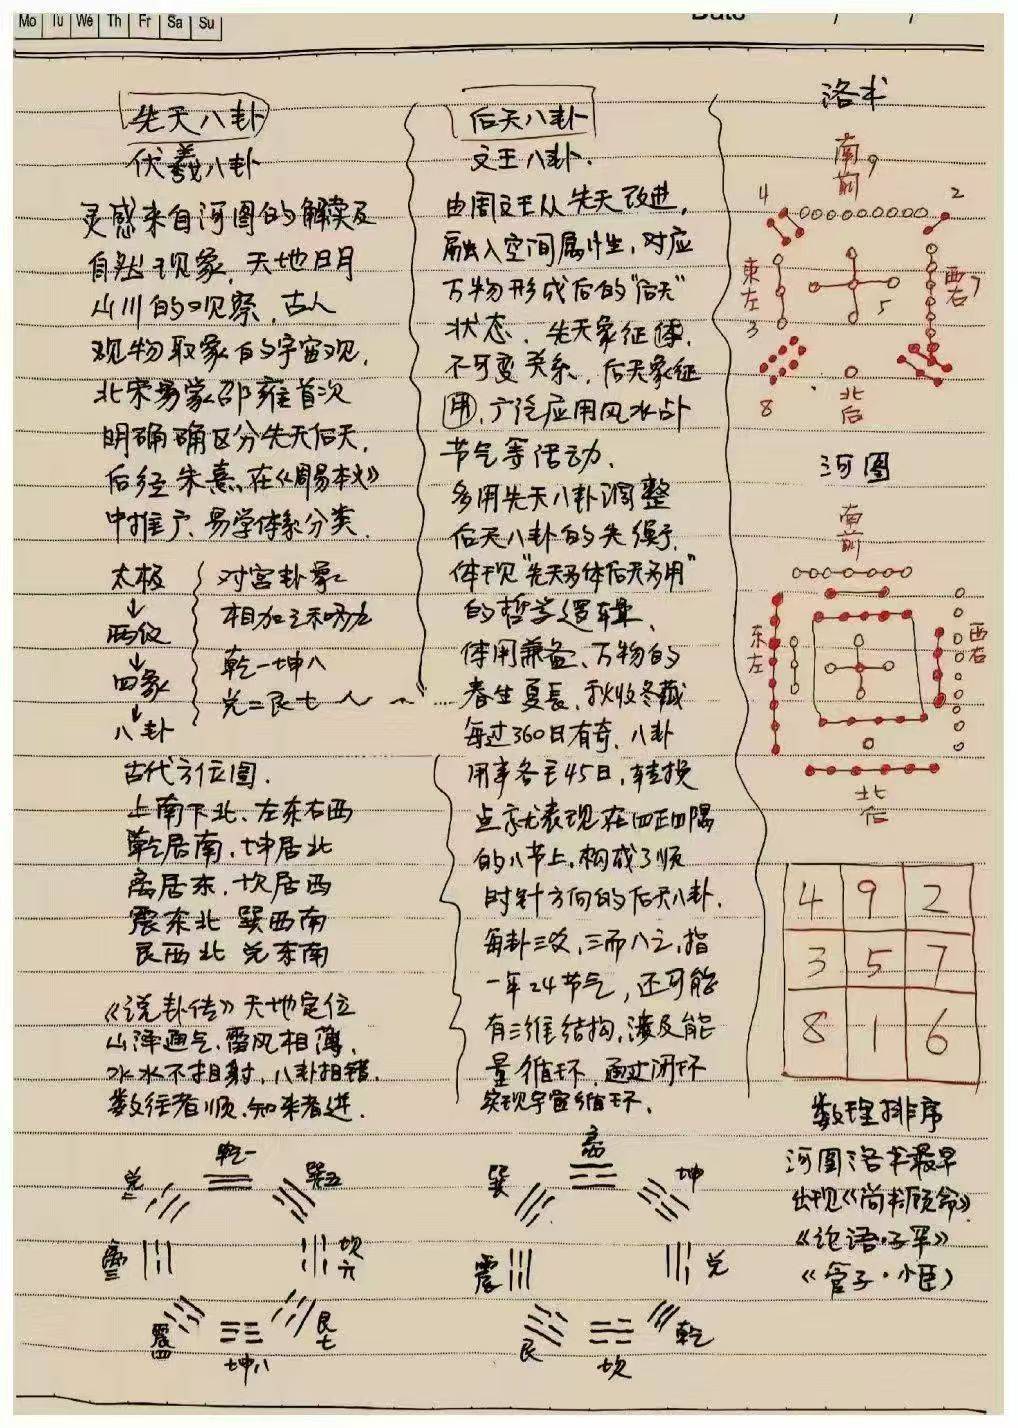 Mo Tu We Th Fr Sa Su
Date / /
先天八卦
伏羲八卦
灵感来自河图的解读及
自然现象，天地日月
山川的观察，古人
观物取象的宇宙观，
北宋易学家邵雍首次
明确确区分先天后天，
后经朱熹在《周易本义》
中推广，易学体系分类
太极
↓
两仪
↓
四象
↓
八卦
对宫卦象
相加之和为九
乾一坤八
兑二艮七
古代方位图．
上南下北、左东右西
乾居南，坤居北
离居东，坎居西
震东北 巽西南
艮西北 兑东南
《说卦传》天地定位
山泽通气，雷风相薄，
水水不相射，八卦相错，
数往者顺，知来者逆．
乾一
兑二
巽五
离三
坎六
震四
艮七
坤八
后天八卦
文王八卦．
由周文王从先天改进，
融入空间属性，对应
万物形成后的“后天”
状态，先天象征体，
不可变关系，后天象征
用，广泛应用风水占
节气等活动．
多用先天八卦调整
后天八卦的失衡，
体现“先天为体后天为用”
的哲学逻辑，
体用兼备，万物的
春生夏長，秋收冬藏
每过360日有奇，八卦
用事各主45日，转换
点就表现在四正四隅
的八节上，构成了顺
时针方向的后天八卦．
每卦三爻，三而八之，指
一年24节气，还可能
有三维结构，涉及能
量循环，通过闭环
实现宇宙循环．
离
巽
坤
震
兑
艮
乾
坎
洛书
南 9
前
4
2
東
左
3
西
右 7
5
8
北
后
河图
南
前
东
左
西
右
北
后
4 9 2
3 5 7
8 1 6
数理排序
河图洛书最早
出现《尚书顾命》
《论语·子罕》
《管子·小臣》